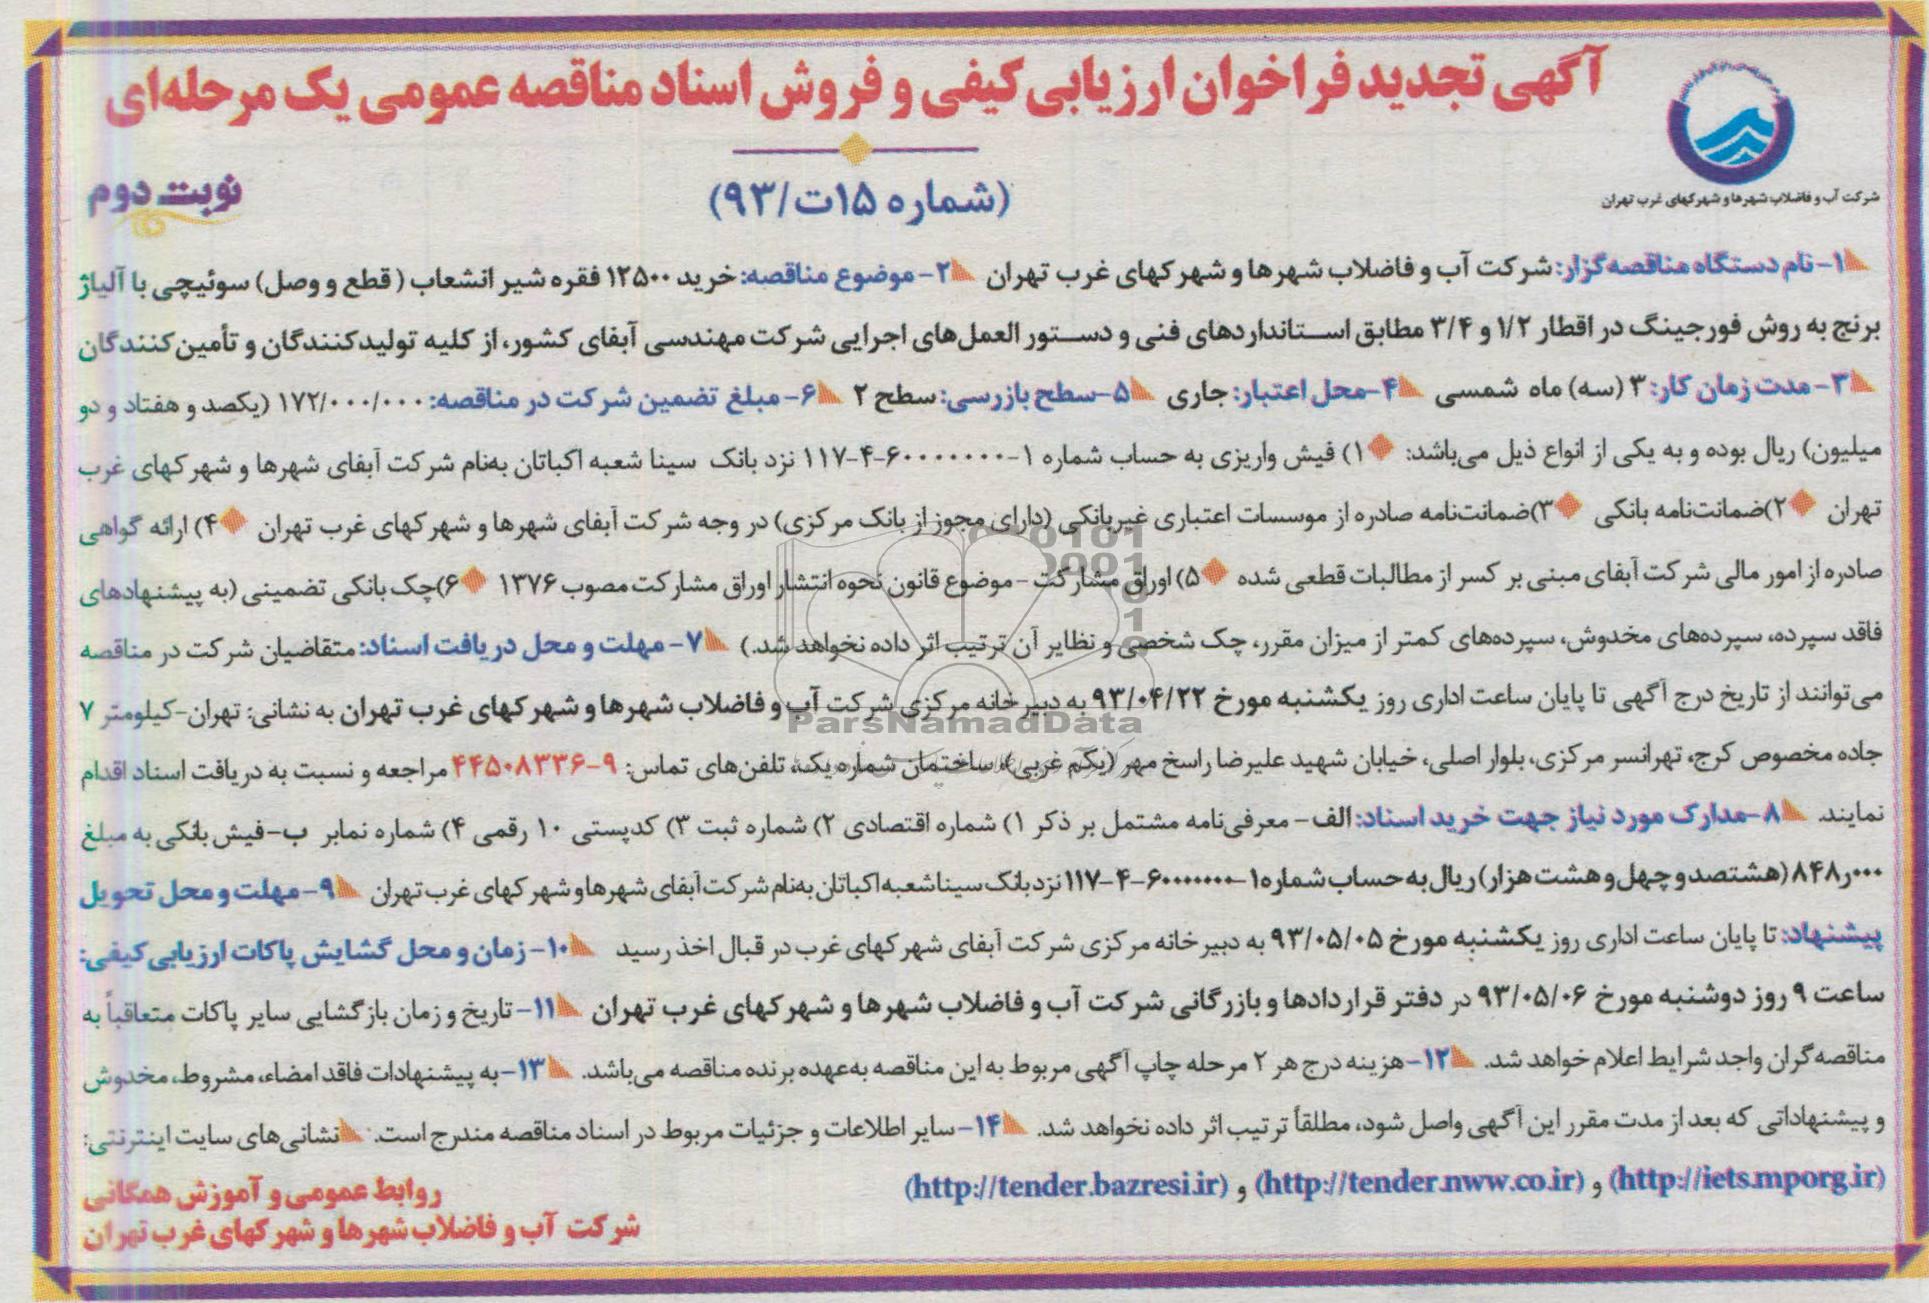 آگهی تجدید فراخوان ارزیابی کیفی و فروش اسناد مناقصه عمومی یک مرحله‌ای
شرکت آب و فاضلاب شهرها و شهرکهای غرب تهران
(شماره ۱۵ت/۹۳)
نوبت دوم
۱- نام دستگاه مناقصه‌گزار: شرکت آب و فاضلاب شهرها و شهرکهای غرب تهران ۲- موضوع مناقصه: خرید ۱۲۵۰۰ فقره شیر انشعاب (قطع و وصل) سوئیچی با آلیاژ
برنج به روش فورجینگ در اقطار ۱/۲ و ۳/۴ مطابق استانداردهای فنی و دستور العمل‌های اجرایی شرکت مهندسی آبفای کشور، از کلیه تولیدکنندگان و تأمین‌کنندگان
۳- مدت زمان کار: ۳ (سه) ماه شمسی ۴-محل اعتبار: جاری ۵-سطح بازرسی: سطح ۲ ۶- مبلغ تضمین شرکت در مناقصه: ۱۷۲/۰۰۰/۰۰۰ (یکصد و هفتاد و دو
میلیون) ریال بوده و به یکی از انواع ذیل می‌باشد: ۱) فیش واریزی به حساب شماره ۱-۶۰۰۰۰۰۰۰-۴-۱۱۷ نزد بانک سینا شعبه اکباتان به‌نام شرکت آبفای شهرها و شهرکهای غرب
تهران ۲)ضمانت‌نامه بانکی ۳)ضمانت‌نامه صادره از موسسات اعتباری غیربانکی (دارای مجوز از بانک مرکزی) در وجه شرکت آبفای شهرها و شهرکهای غرب تهران ۴) ارائه گواهی
صادره از امور مالی شرکت آبفای مبنی بر کسر از مطالبات قطعی شده ۵) اوراق مشارکت - موضوع قانون نحوه انتشار اوراق مشارکت مصوب ۱۳۷۶ ۶)چک بانکی تضمینی (به پیشنهادهای
فاقد سپرده، سپرده‌های مخدوش، سپرده‌های کمتر از میزان مقرر، چک شخصی و نظایر آن ترتیب اثر داده نخواهد شد.) ۷- مهلت و محل دریافت اسناد: متقاضیان شرکت در مناقصه
می‌توانند از تاریخ درج آگهی تا پایان ساعت اداری روز یکشنبه مورخ ۹۳/۰۴/۲۲ به دبیرخانه مرکزی شرکت آب و فاضلاب شهرها و شهرکهای غرب تهران به نشانی: تهران-کیلومتر ۷
جاده مخصوص کرج، تهرانسر مرکزی، بلوار اصلی، خیابان شهید علیرضا راسخ مهر (یکم غربی)، ساختمان شماره یک، تلفن‌های تماس: ۹-۴۴۵۰۸۳۳۶ مراجعه و نسبت به دریافت اسناد اقدام
نمایند. ۸-مدارک مورد نیاز جهت خرید اسناد: الف- معرفی‌نامه مشتمل بر ذکر ۱) شماره اقتصادی ۲) شماره ثبت ۳) کدپستی ۱۰ رقمی ۴) شماره نمابر ب-فیش بانکی به مبلغ
۸۴۸ر۰۰۰ (هشتصد و چهل و هشت هزار) ریال به حساب شماره ۱-۶۰۰۰۰۰۰۰-۴-۱۱۷ نزد بانک سینا شعبه اکباتان به‌نام شرکت آبفای شهرها و شهرکهای غرب تهران ۹- مهلت و محل تحویل
پیشنهاد: تا پایان ساعت اداری روز یکشنبه مورخ ۹۳/۰۵/۰۵ به دبیرخانه مرکزی شرکت آبفای شهرکهای غرب در قبال اخذ رسید ۱۰- زمان و محل گشایش پاکات ارزیابی کیفی:
ساعت ۹ روز دوشنبه مورخ ۹۳/۰۵/۰۶ در دفتر قراردادها و بازرگانی شرکت آب و فاضلاب شهرها و شهرکهای غرب تهران ۱۱- تاریخ و زمان بازگشایی سایر پاکات متعاقباً به
مناقصه‌گران واجد شرایط اعلام خواهد شد. ۱۲- هزینه درج هر ۲ مرحله چاپ آگهی مربوط به این مناقصه به‌عهده برنده مناقصه می‌باشد. ۱۳- به پیشنهادات فاقد امضاء، مشروط، مخدوش
و پیشنهاداتی که بعد از مدت مقرر این آگهی واصل شود، مطلقاً ترتیب اثر داده نخواهد شد. ۱۴- سایر اطلاعات و جزئیات مربوط در اسناد مناقصه مندرج است. نشانی‌های سایت اینترنتی:
(http://iets.mporg.ir) و (http://tender.nww.co.ir) و (http://tender.bazresi.ir)
روابط عمومی و آموزش همگانی
شرکت آب و فاضلاب شهرها و شهرکهای غرب تهران
ParsNamadData